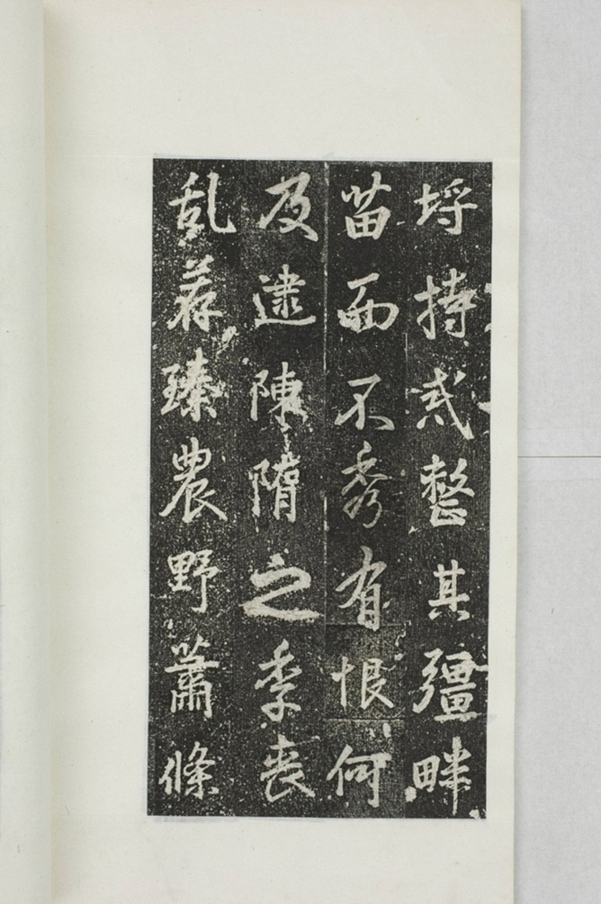 埒持式整其疆畔
苗而不秀有恨何
及逮陳隋之季喪
乱荐臻農野蕭條